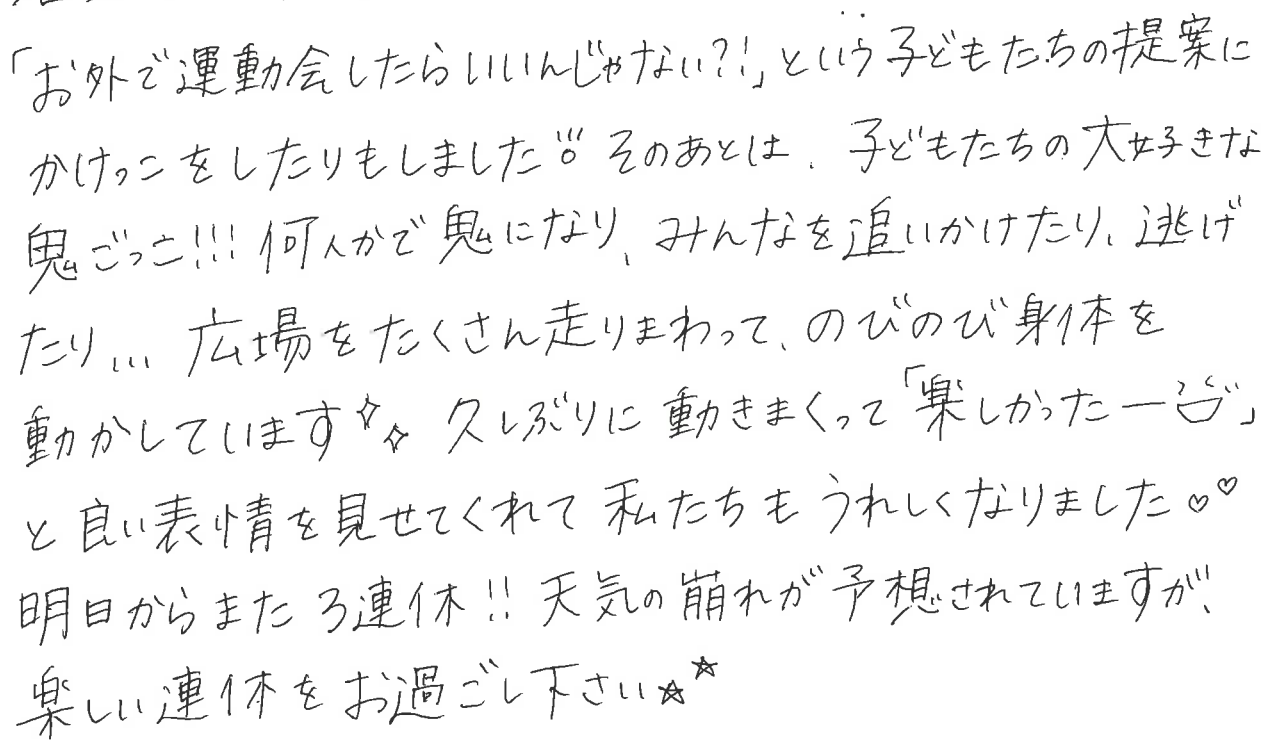 「お外で運動会したらいいんじゃない?!」という子どもたちの提案に
かけっこをしたりもしました!!! そのあとは、子どもたちの大好きな
鬼ごっこ!!! 何人かで鬼になり、みんなを追いかけたり、逃げ
たり... 広場をたくさん走りまわって、のびのび身体を
動かしています✧✧ 久しぶりに動きまくって「楽しかったー」
と良い表情を見せてくれて私たちもうれしくなりました♡♡
明日からまた3連休!! 天気の崩れが予想されていますが、
楽しい連休をお過ごし下さい★★